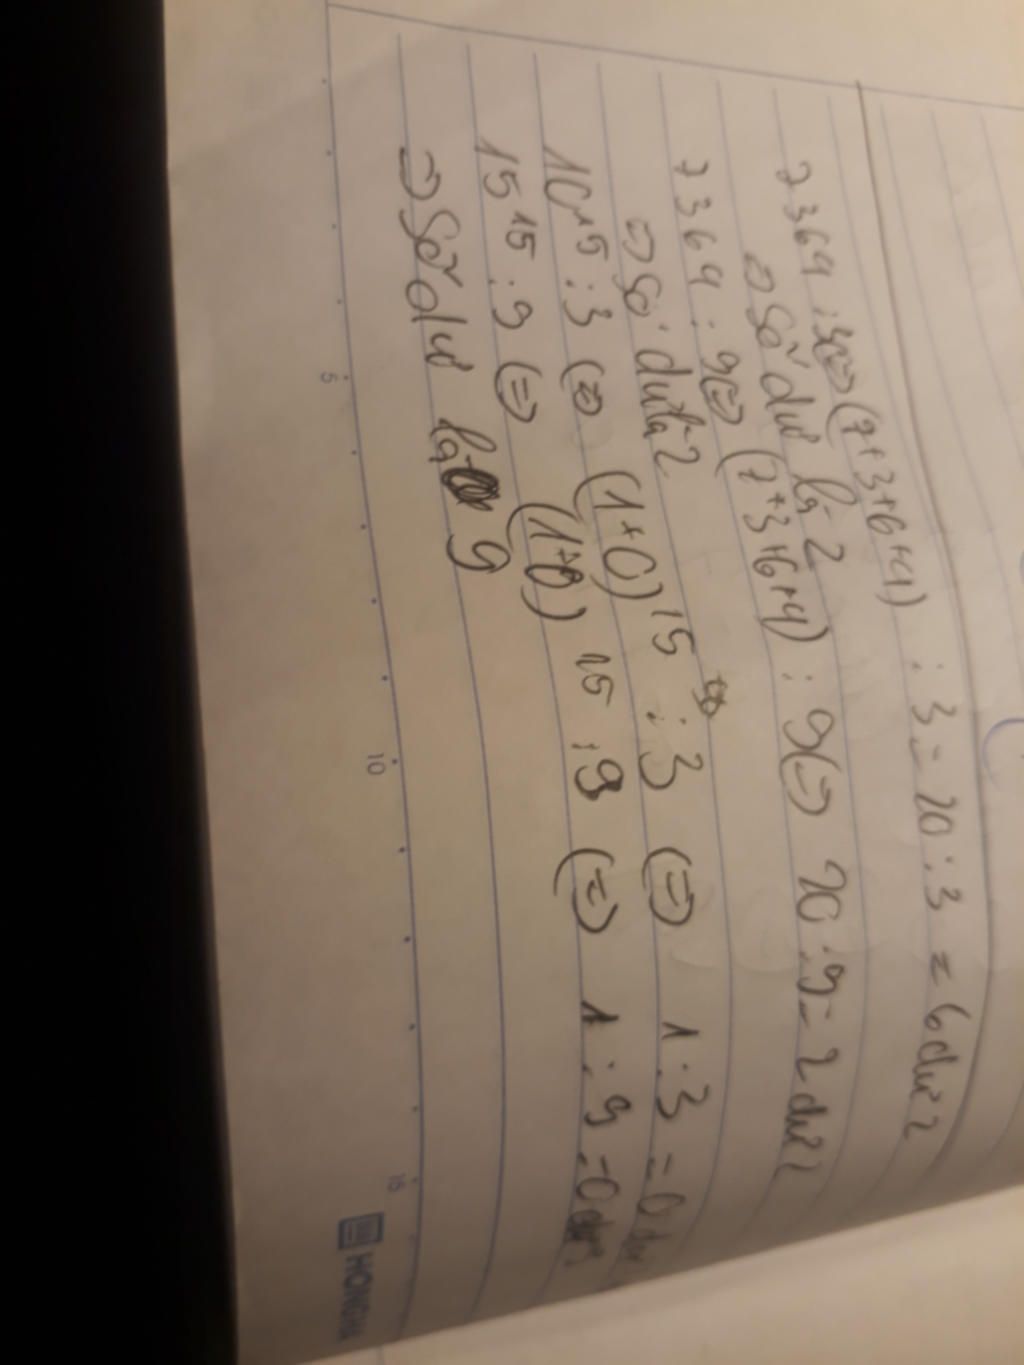 7364 : 3 <=> (7+3+6+4) : 3 = 20 : 3 = 6 dư 2
=> Số dư là 2
7364 : 9 <=> (7+3+6+4) : 9 <=> 20 : 9 = 2 dư 2
=> Số dư là 2
10^15 : 3 <=> (1+0)^15 : 3 <=> 1 : 3 = 0 dư
15^15 : 9 <=> (1+0)^15 : 9 <=> 1 : 9 = 0 dư
=> Số dư là 9
5
10
15
HONGHA